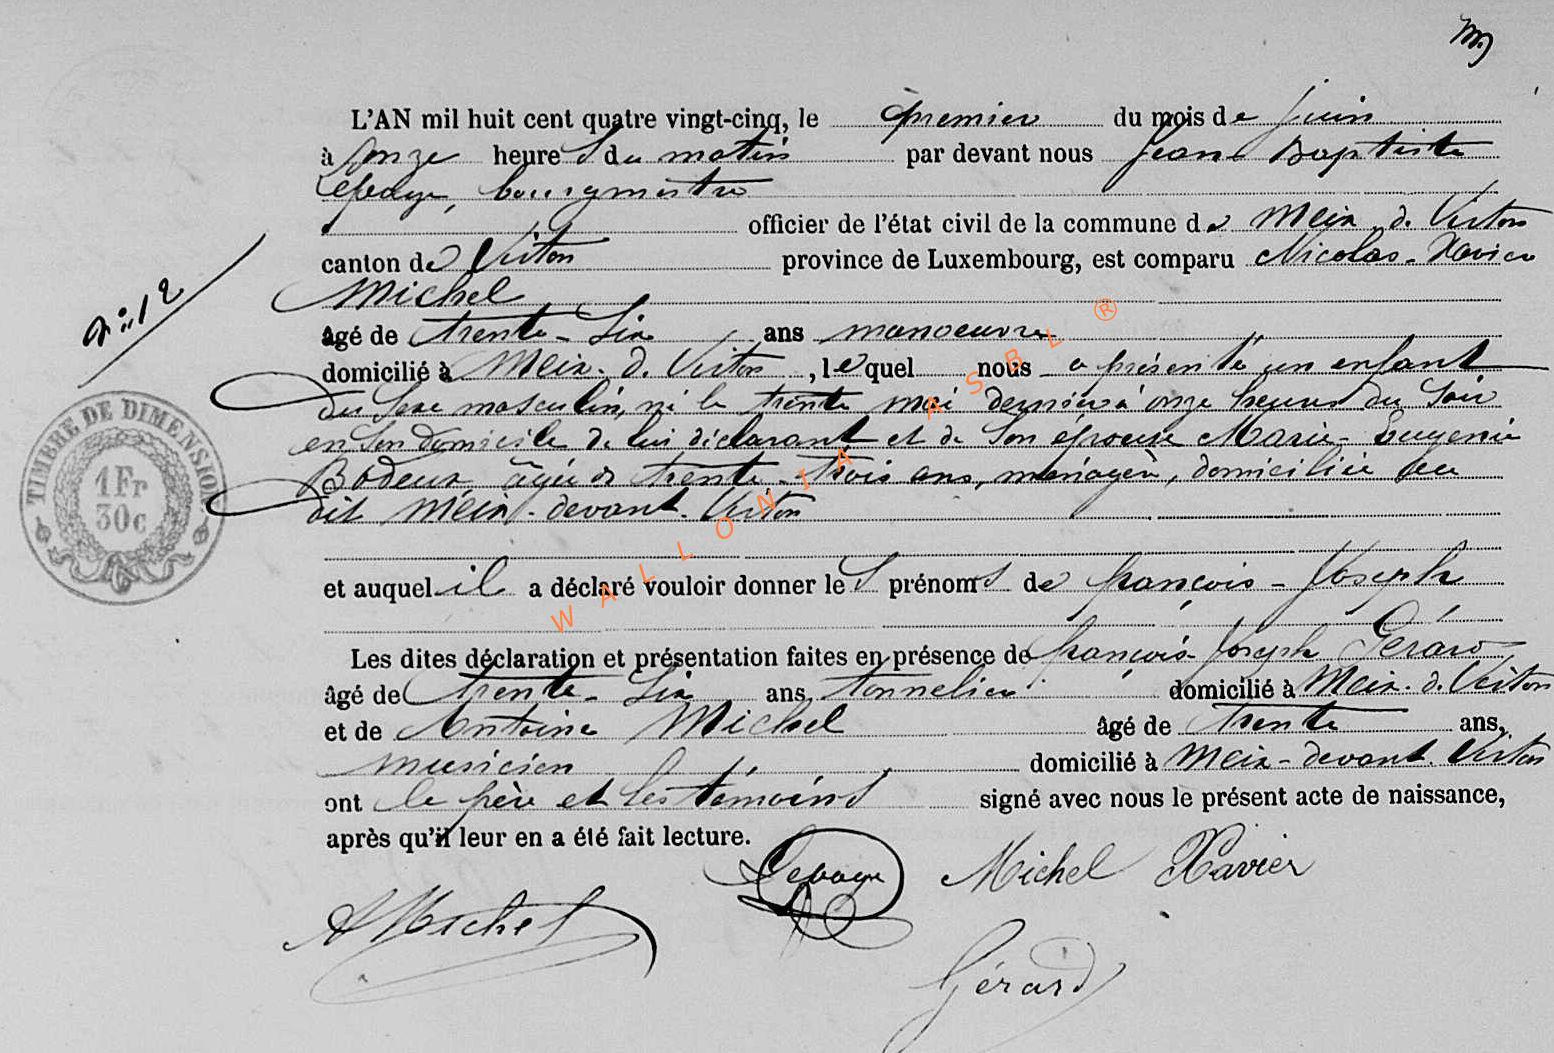 L'AN mil huit cent quatre vingt-cinq, le premier du mois de juin
à onze heures du matin par devant nous Jean Baptiste
Lepage, bourgmestre
officier de l'état civil de la commune de Meix-d. Virton
canton de Virton province de Luxembourg, est comparu Nicolas-Xavier
Michel
âgé de trente-six ans manoeuvre
domicilié à Meix-d. Virton, lequel nous a présenté un enfant
du sexe masculin, né le trente mai dernier à onze heures du soir
en son domicile de lui déclarant et de son épouse Marie-Eugenie
Bodeux âgée de trente-trois ans, ménagère, domiciliée au
dit Meix-devant-Virton
et auquel il a déclaré vouloir donner les prénoms de françois-Joseph
Les dites déclaration et présentation faites en présence de françois-Joseph Gérard
âgé de trente-six ans, tonnelier domicilié à Meix-d. Virton
et de Antoine Michel âgé de trente ans,
musicien domicilié à Meix-devant-Virton
ont le père et les témoins signé avec nous le présent acte de naissance,
après qu'il leur en a été fait lecture.
Lepage Michel Xavier
A Michel
Gérard
N° 12
TIMBRE DE DIMENSION
1 Fr
30c
WALLONIA ASBL ®